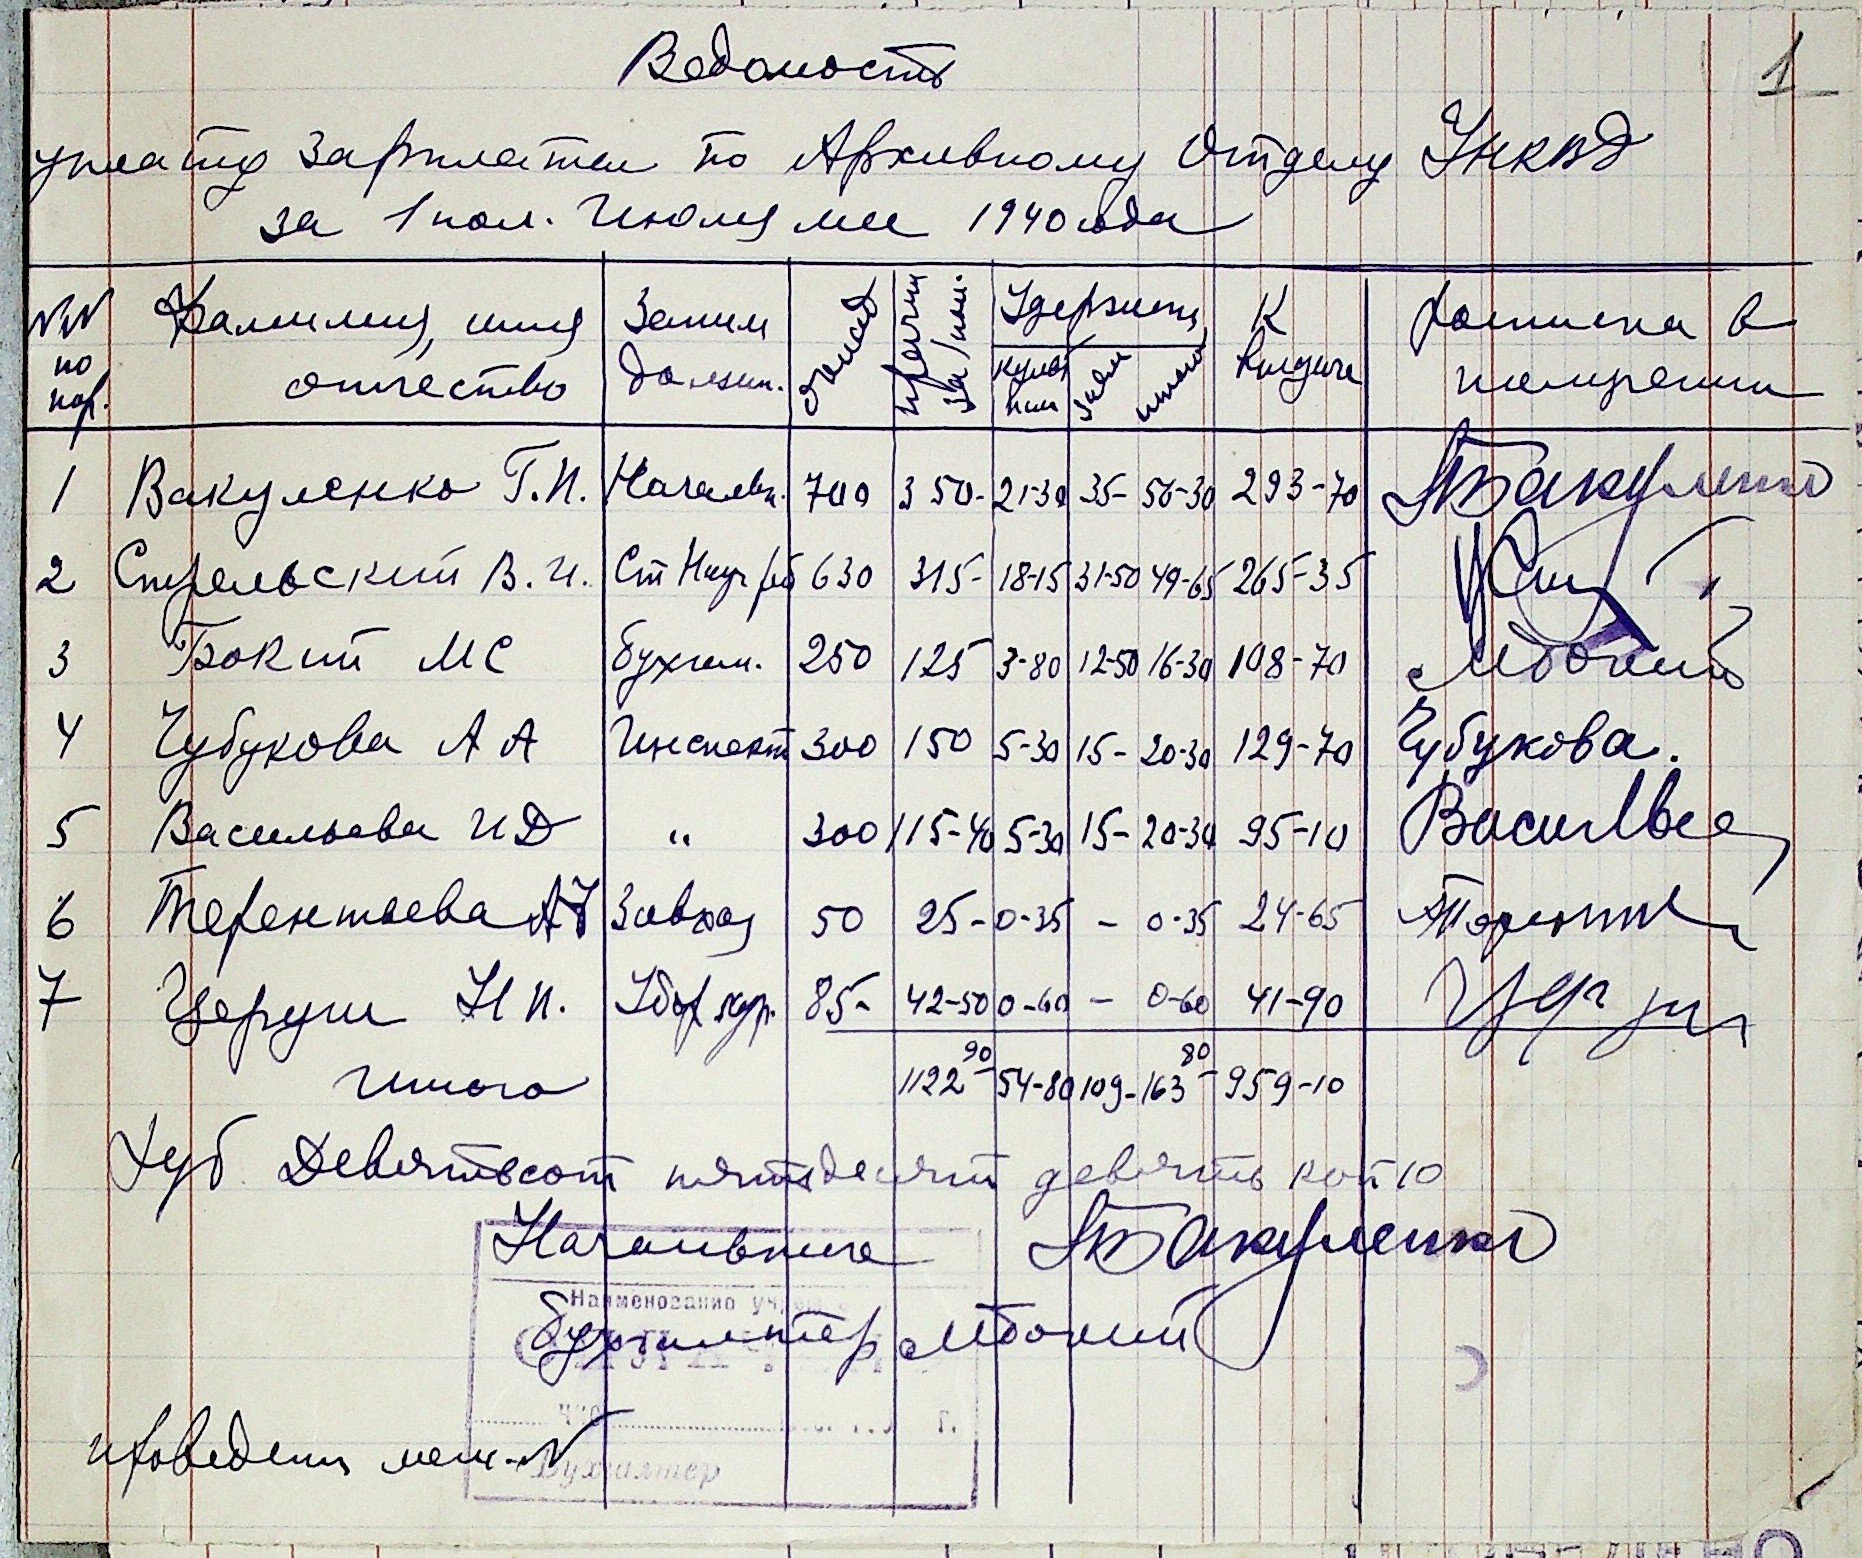 1
Ведомость
уплату зарплаты по Архивному Отделу УНКВД
за 1 пол. Июля м-ц 1940 года
NN по пор. Фамилия, имя отчество Заним должн. оклад причит за 1 пол. Удержит культ нал заем итого К выдаче Росписка в получении
1 Вакуленко Г.П. Начальн. 700 350- 21-30 35- 56-30 293-70 Вакуленко
2 Стрельский В.И. Ст Науч раб 630 315- 18-15 31-50 49-65 265-35
3 Бокий МС бухгал. 250 125 3-80 12-50 16-30 108-70 МБокий
4 Чубукова АА Инспект 300 150 5-30 15- 20-30 129-70 Чубукова.
5 Васильева ИД " 300 115-40 5-30 15- 20-30 95-10 Васильева
6 Терентьева А Завхоз 50 25- 0-35 - 0-35 24-65
7 Церуш Н П. Убор кур. 85- 42-50 0-60 - 0-60 41-90
Итого 1122-90 54-80 109- 163-80 959-10
Руб. Девятьсот пятьдесят девять коп 10
Начальник Вакуленко
Наименование
Бухгалтер МБокий
г.
проведены
Бухгалтер